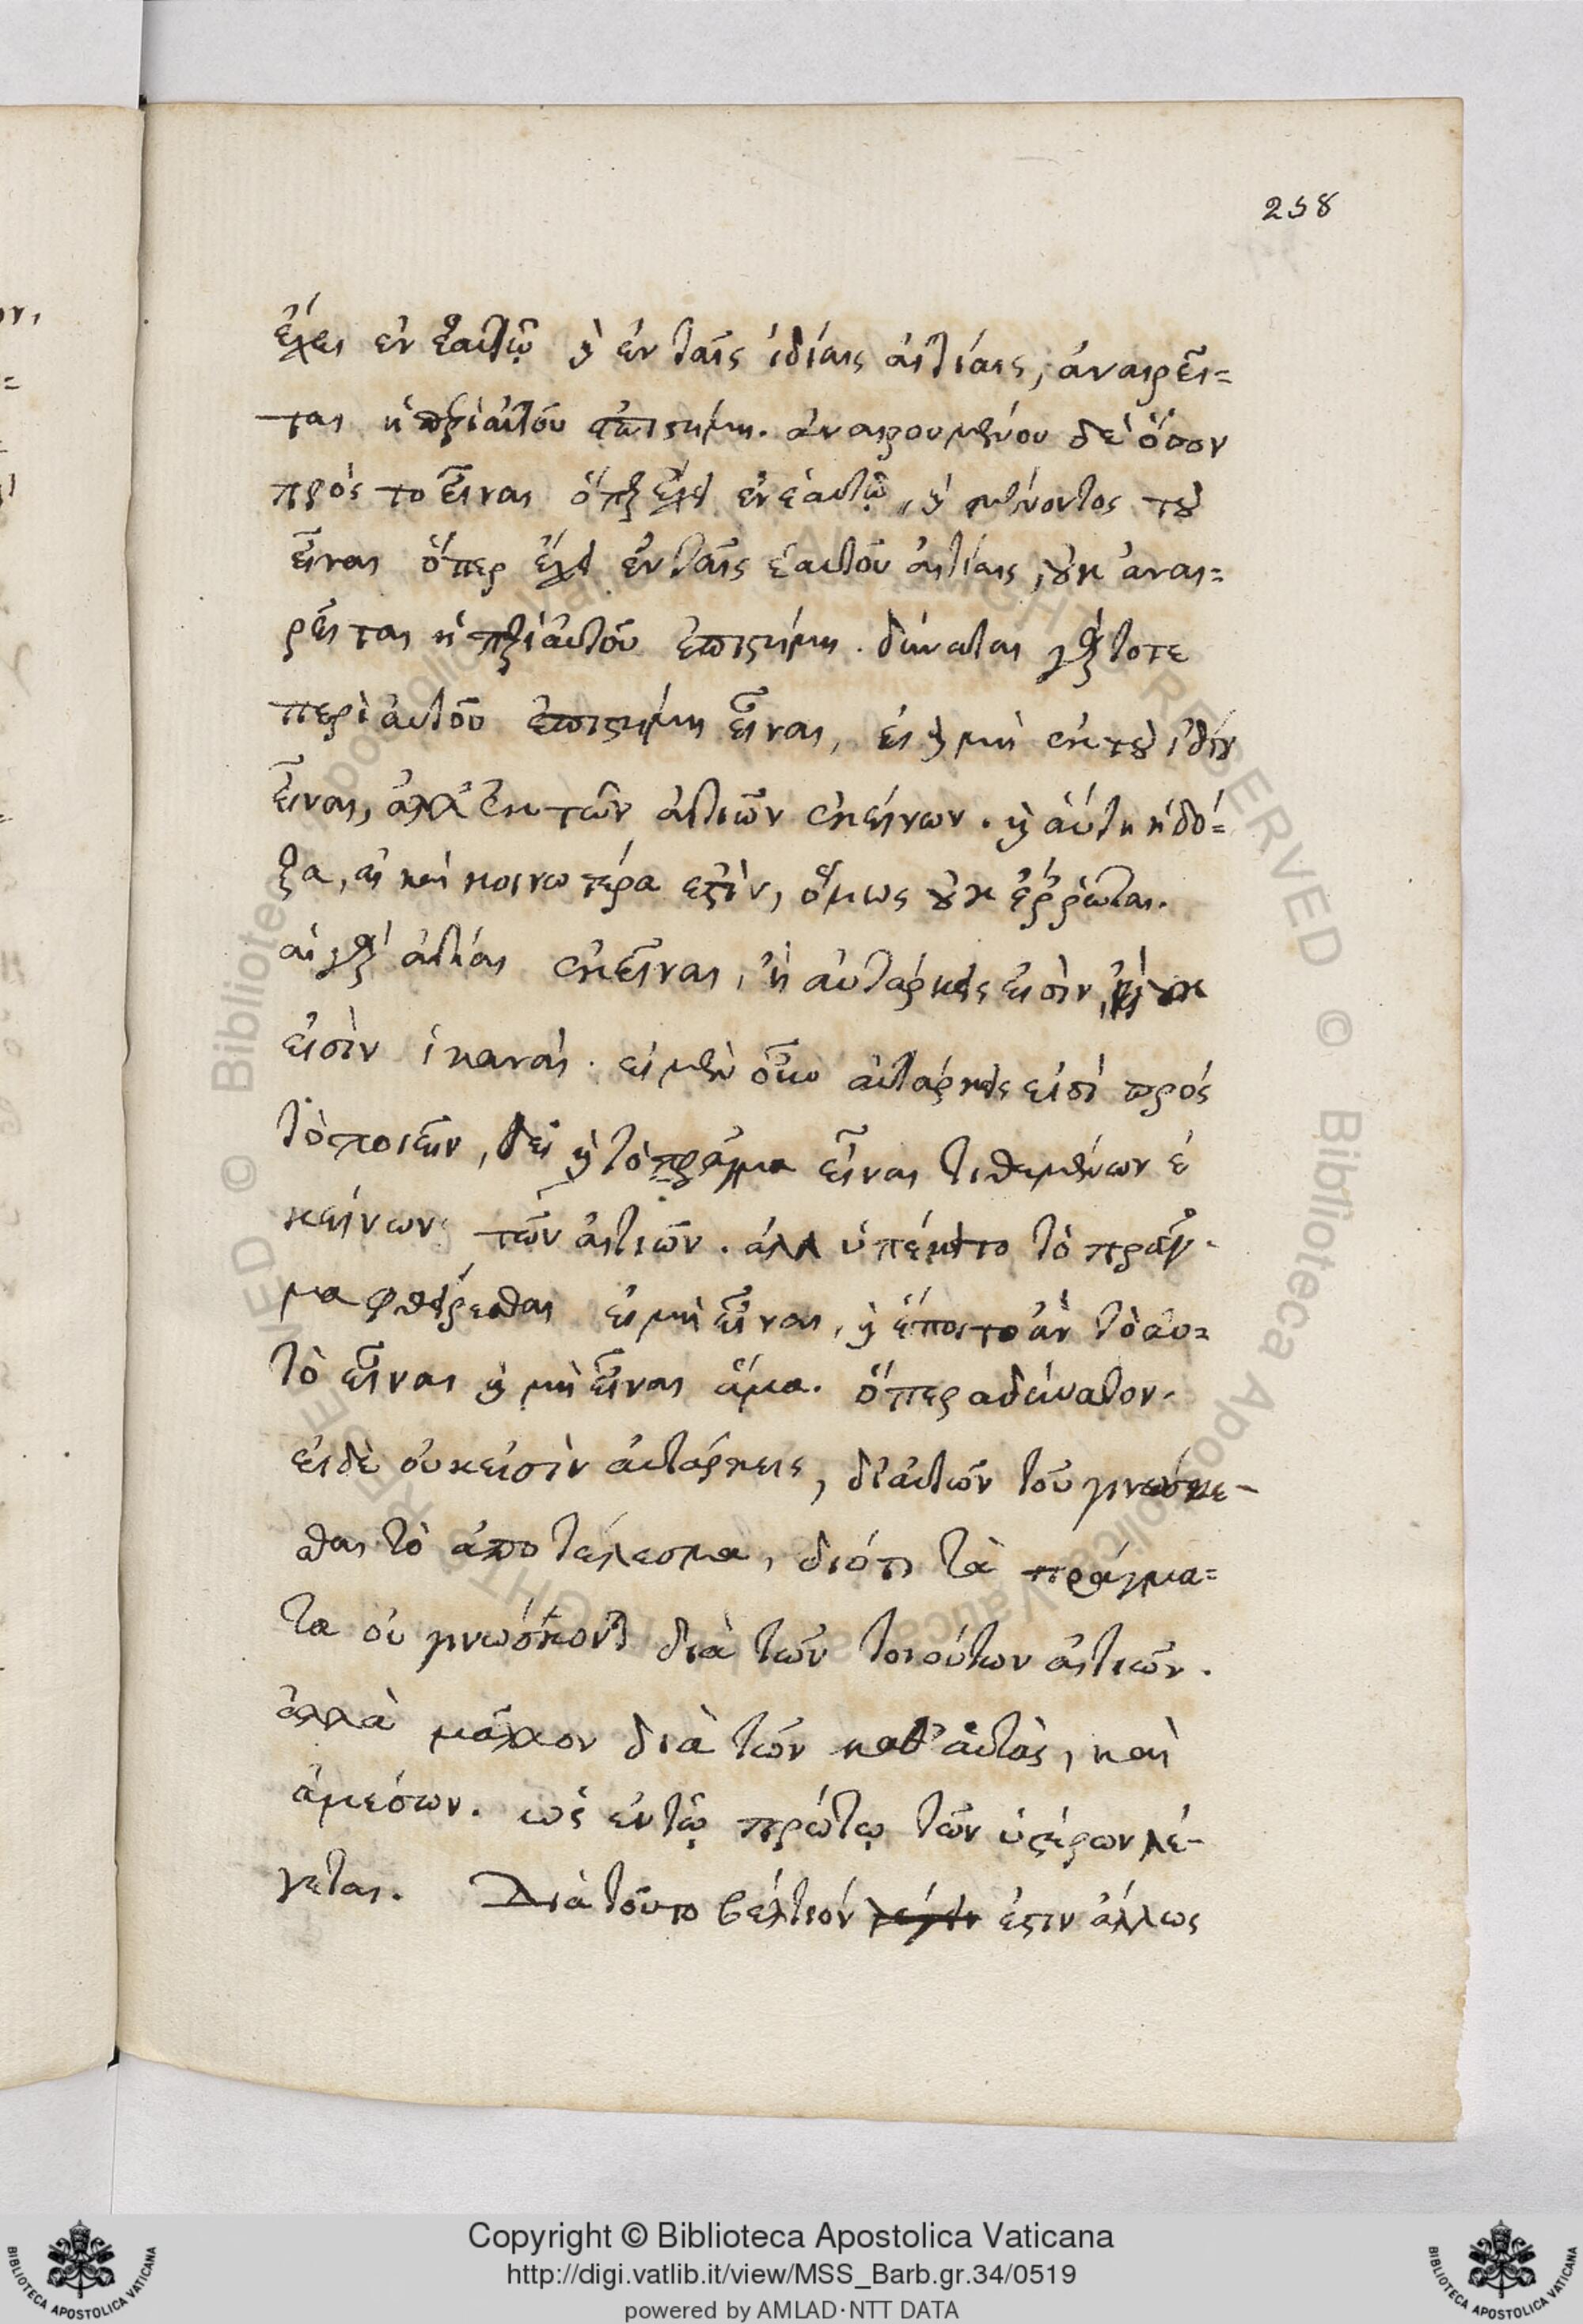 258
ἔχει ἐν ἑαυτῷ ἢ ἐν ταῖς ἰδίαις αἰτίαις, ἀναιρεῖ=
ται ἡ περὶ αὐτοῦ ἐπιστήμη. ἀναιρουμένου δὲ ὅσον
πρὸς το εἶναι ὅπερ ἔχει ἐν ἑαυτῷ, καὶ μένοντος τοῦ
εἶναι ὅπερ ἔχει ἐν ταῖς ἑαυτοῦ αἰτίαις, οὐκ ἀναι=
ρεῖται ἡ περὶ αὐτοῦ ἐπιστήμη. δύναται γὰρ τοτε
περὶ αὐτοῦ ἐπιστήμη εἶναι, εἰ καὶ μὴ ἐκ τοῦ ἰδίου
εἶναι, ἀλλ' ἐκ τῶν αἰτιῶν ἐκείνων. καὶ αὕτη ἡ δό=
ξα, εἰ καὶ κοινωτέρα ἐστὶν, ὅμως οὐκ ἔῤῥωται.
αἱ γὰρ αἰτίαι ἐκεῖναι, ἢ αὐτάρκεις εἰσὶν, ἢ οὐκ
εἰσὶν ἱκαναί. εἰ μὲν οὖν αὐτάρκεις εἰσὶ πρὸς
τὸ ποιεῖν, δεῖ καὶ τὸ πρᾶγμα εἶναι τιθεμένων ἐ
κείνων τῶν αἰτιῶν. ἀλλ ὑπέκειτο τὸ πρᾶγ-
μα φθείρεσθαι εἰ μὴ εἶναι, καὶ ἕποιτο ἂν τὸ αυ=
τὸ εἶναι καὶ μὴ εἶναι ἅμα. ὅπερ αδύνατον.
εἰ δὲ οὐκ εἰσὶν αὐτάρκεις, δι' αὐτῶν τοῦ γινώσκε-
σθαι τὸ ἀποτέλεσμα, διότι τὰ πράγμα=
τα οὐ γινώσκονται διὰ τῶν τοιούτων αἰτιῶν.
ἀλλὰ μᾶλλον διὰ τῶν καθ' αὑτὰς, καὶ
ἀμέσων. ὡς ἐν τῷ πρώτῳ τῶν ὑστέρων λέ-
γεται. Διὰ τοῦτο βέλτιόν λέγειν ἐστιν ἄλλως
Copyright © Biblioteca Apostolica Vaticana
http://digi.vatlib.it/view/MSS_Barb.gr.34/0519
powered by AMLAD·NTT DATA